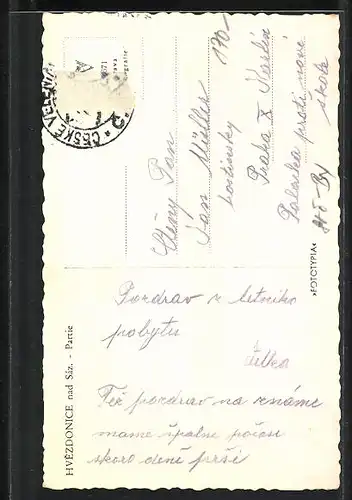 HVĚZDONICE nad Sáz. - Partie
»FOTOTYPIA«
ČESKÉ VELENIC
2
A
190-
Ctěný Pan
Jan Müller
hostinský
Praha X Karlín
Palacka proti nové
škole
Pozdrav z letního
pobytu
Jitka
Též pozdrav na známé
máme špatné počasí
skoro deně prší